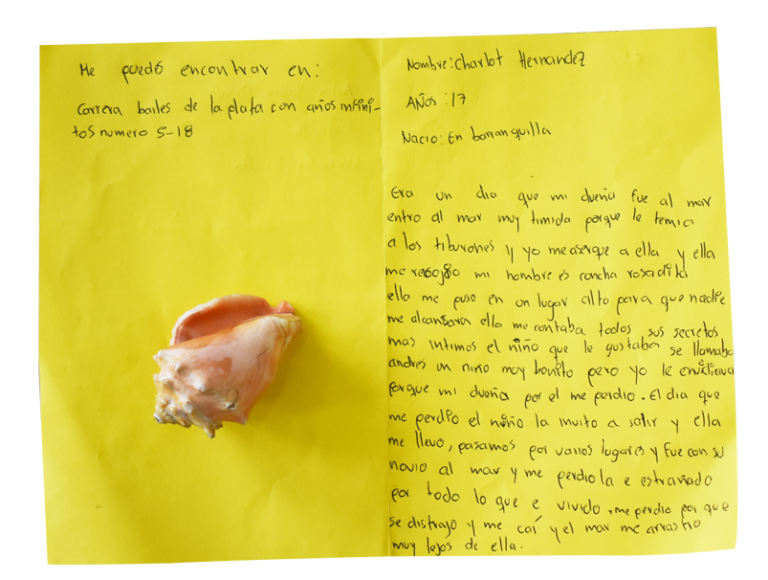 Me puedo encontrar en:
Carrera bailes de la plata con años infini-
tos numero 5-18
Nombre: Charlot Hernandez
AÑos: 17
Nacio: En barranquilla
Era un dia que mi dueña fue al mar
entro al mar muy timida porque le temia
a los tiburones y yo me aserque a ella y ella
me recogio mi nombre es concha rosadita
ella me puso en un lugar alto para que nadie
me alcantara ella me contaba todos sus secretos
mas intimos el niño que le gustaba se llamaba
andres un niño muy bonito pero yo le
porque mi dueña por el me perdio. El dia que
me perdio el niño la invito a salir y ella
me llevo, pasamos por varios lugares y fue con su
novio al mar y me perdio la e estrañado
por todo lo que e vivido, me perdio por que
se distrajo y me caí y el mar me arrastro
muy lejos de ella.